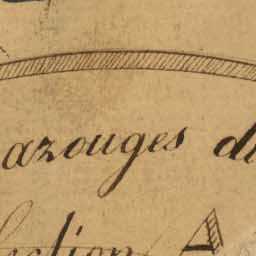 azouges du
Section A